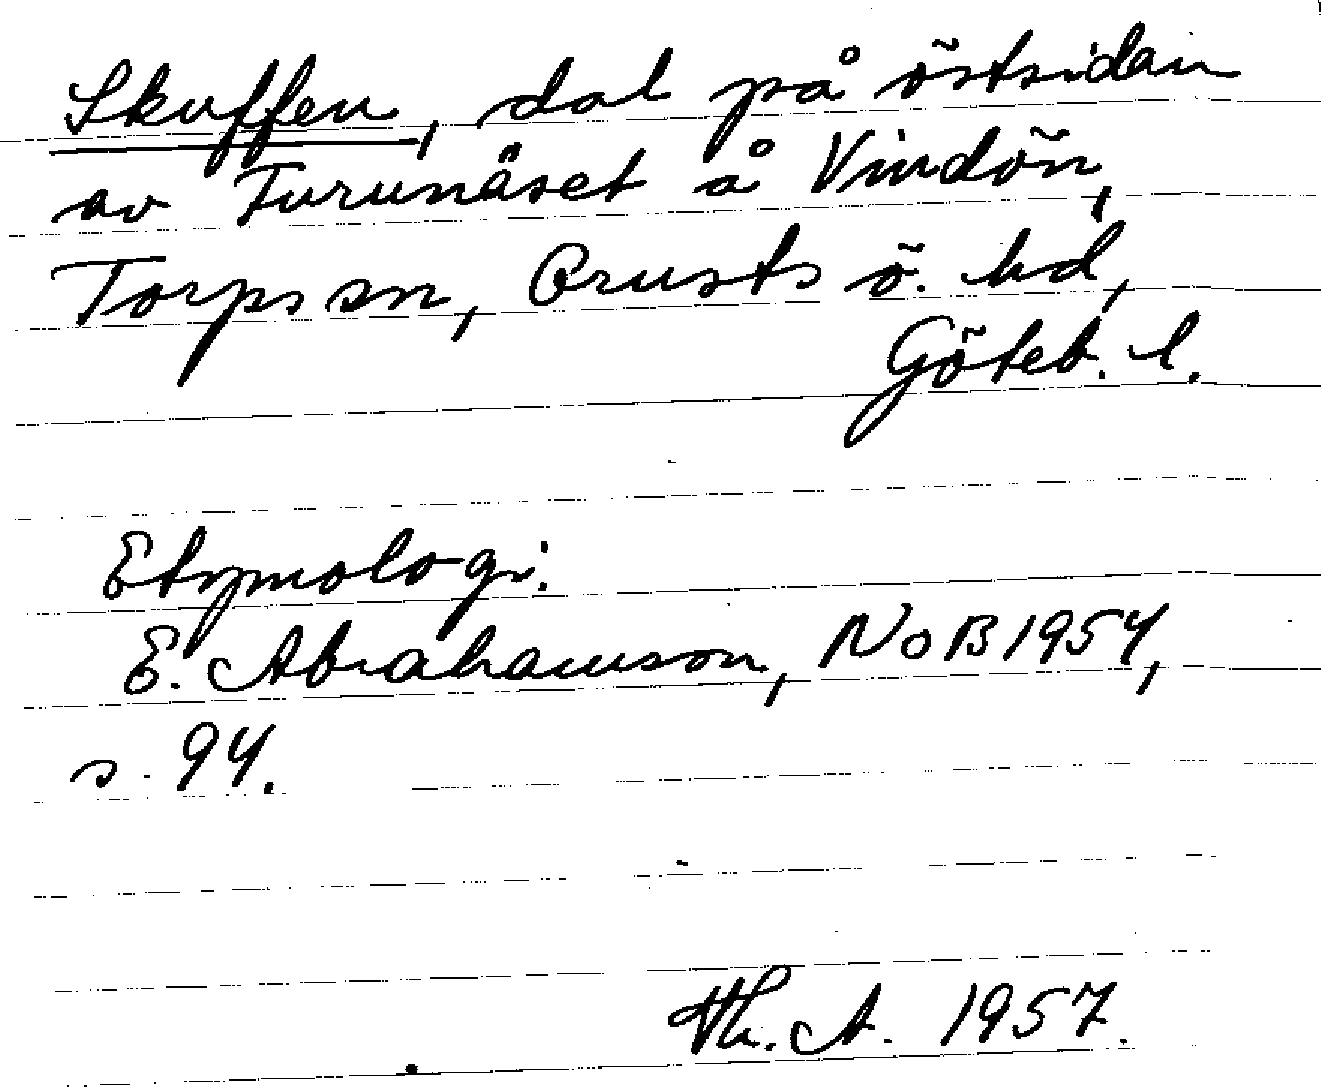 Skuffen, dal på östsidan
av Furunäset å Vindön,
Torps sn, Orusts ö. hd,
Göteb. l.
Etymologi:
E. Abrahamson, NoB 1954,
s. 94.
Th. A. 1957.